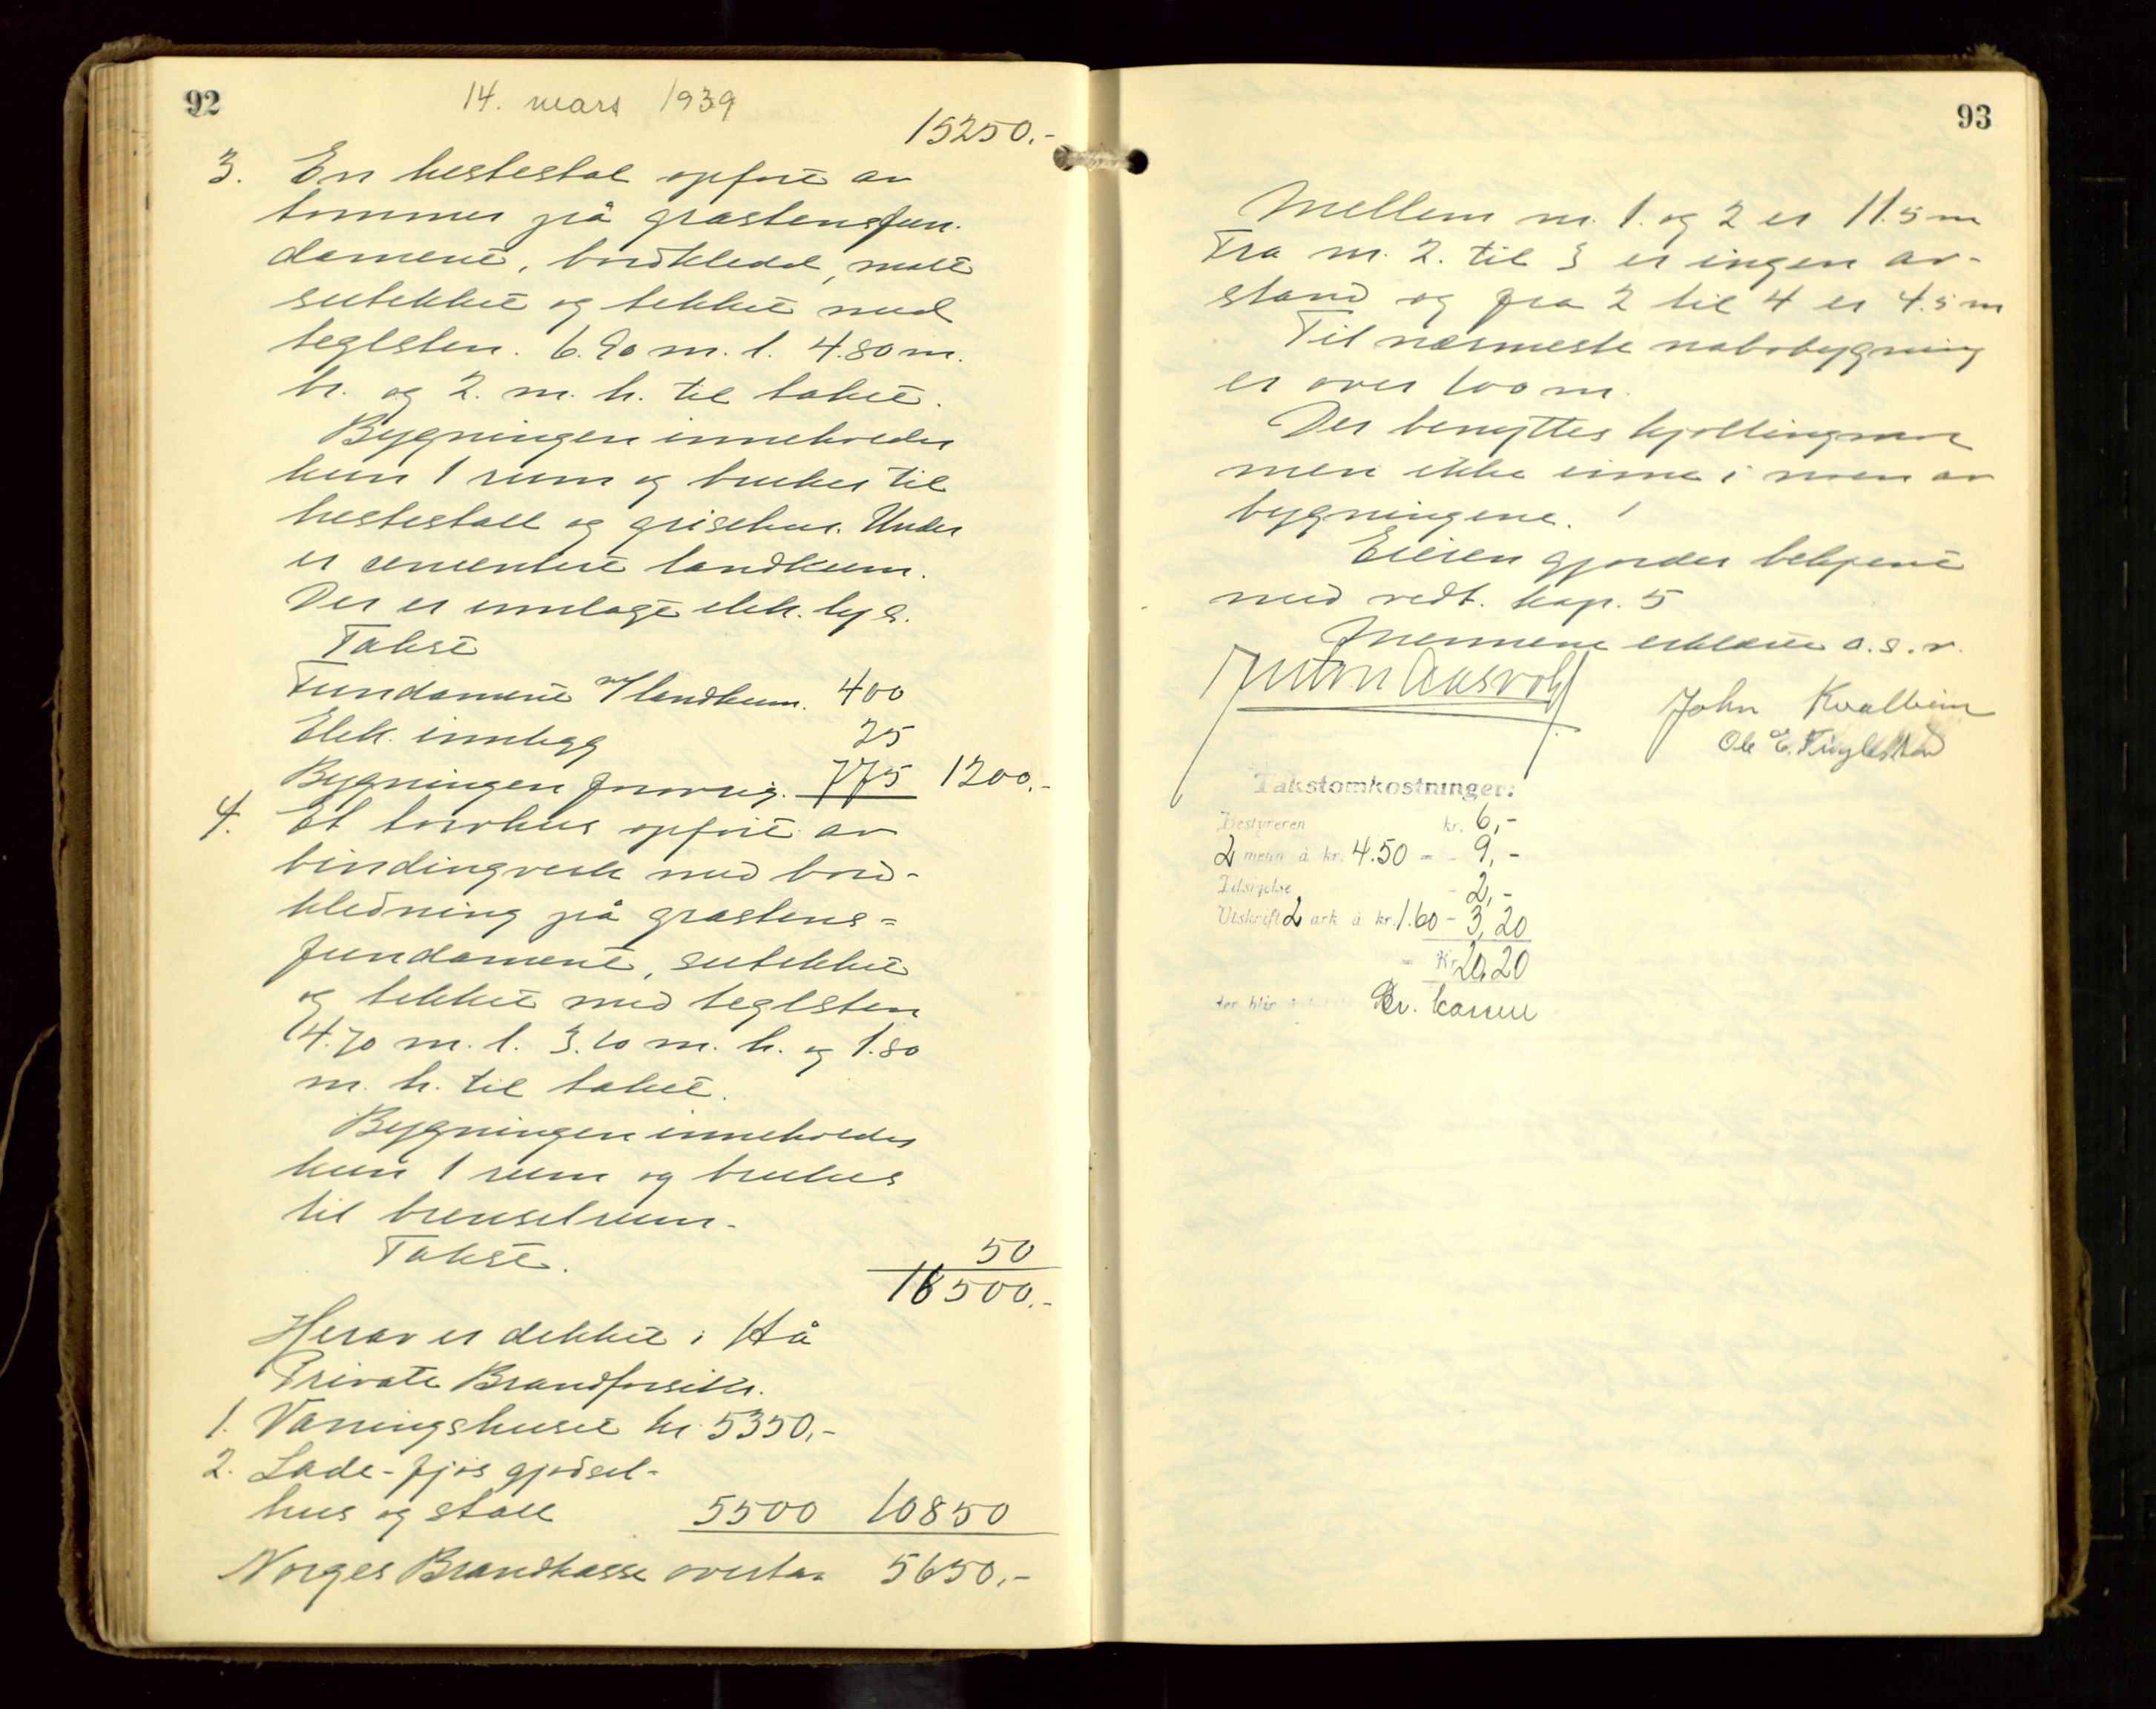 92
14. mars 1939
15250.-
3. En hestestal opført av
tømmer på gråstensfun-
dament, bordkledd, malt
sutekket og tekket med
teglsten. 6.90 m. l. 4.80 m.
br. og 2. m. h. til taket.
Bygningen inneholder
kun 1 rum og brukes til
hestestall og grisehus. Under
er cementert landkum.
Der er innlagt elek. lys.
Takst
Fundament m/landkum. 400
Elek. innlegg 25
Bygningen forøvrig. 775 1200.-
4. Et torvhus opført av
bindingverk med bord-
kledning på gråstens-
fundament, sutekket
og tekket med teglsten
4.70 m. l. 3.10 m. b. og 1.80
m. h. til taket.
Bygningen inneholder
kun 1 rum og brukes
til brenselrum.
Takst. 50
16500.-
Herav er dekket i Hå
Private Brandforsikr.
1. Våningshuset kr 5350,-
2. Lade- fjøs gjødsel-
hus og stall 5500 10850
Norges Brandkasse overtar 5650,-
93
Mellem nr. 1. og 2 er 11.5 m
Fra nr. 2. til 3 er ingen av-
stand og fra 2 til 4 er 4.5 m
Til nærmeste nabobygning
er over 100 m.
Der benyttes
men ikke inne i noen av
bygningene.
Eieren gjordes bekjent
med vedt. kap. 5
Mennene erklærte a.s.v.
John Kvalheim
Ole E. Fuglestad
Takstomkostninger:
Bestyreren kr. 6,-
2 menn à kr. 4.50 = - 9,-
Tilsigelse - 2,-
Utskrift 2 ark à kr. 1.60 - 3,20
= Kr. 20,20
der blir Br. kassen